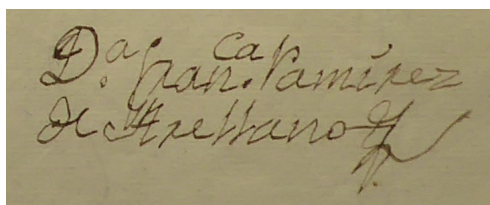 D.ª Fran.ca Ramírez
de Arellano